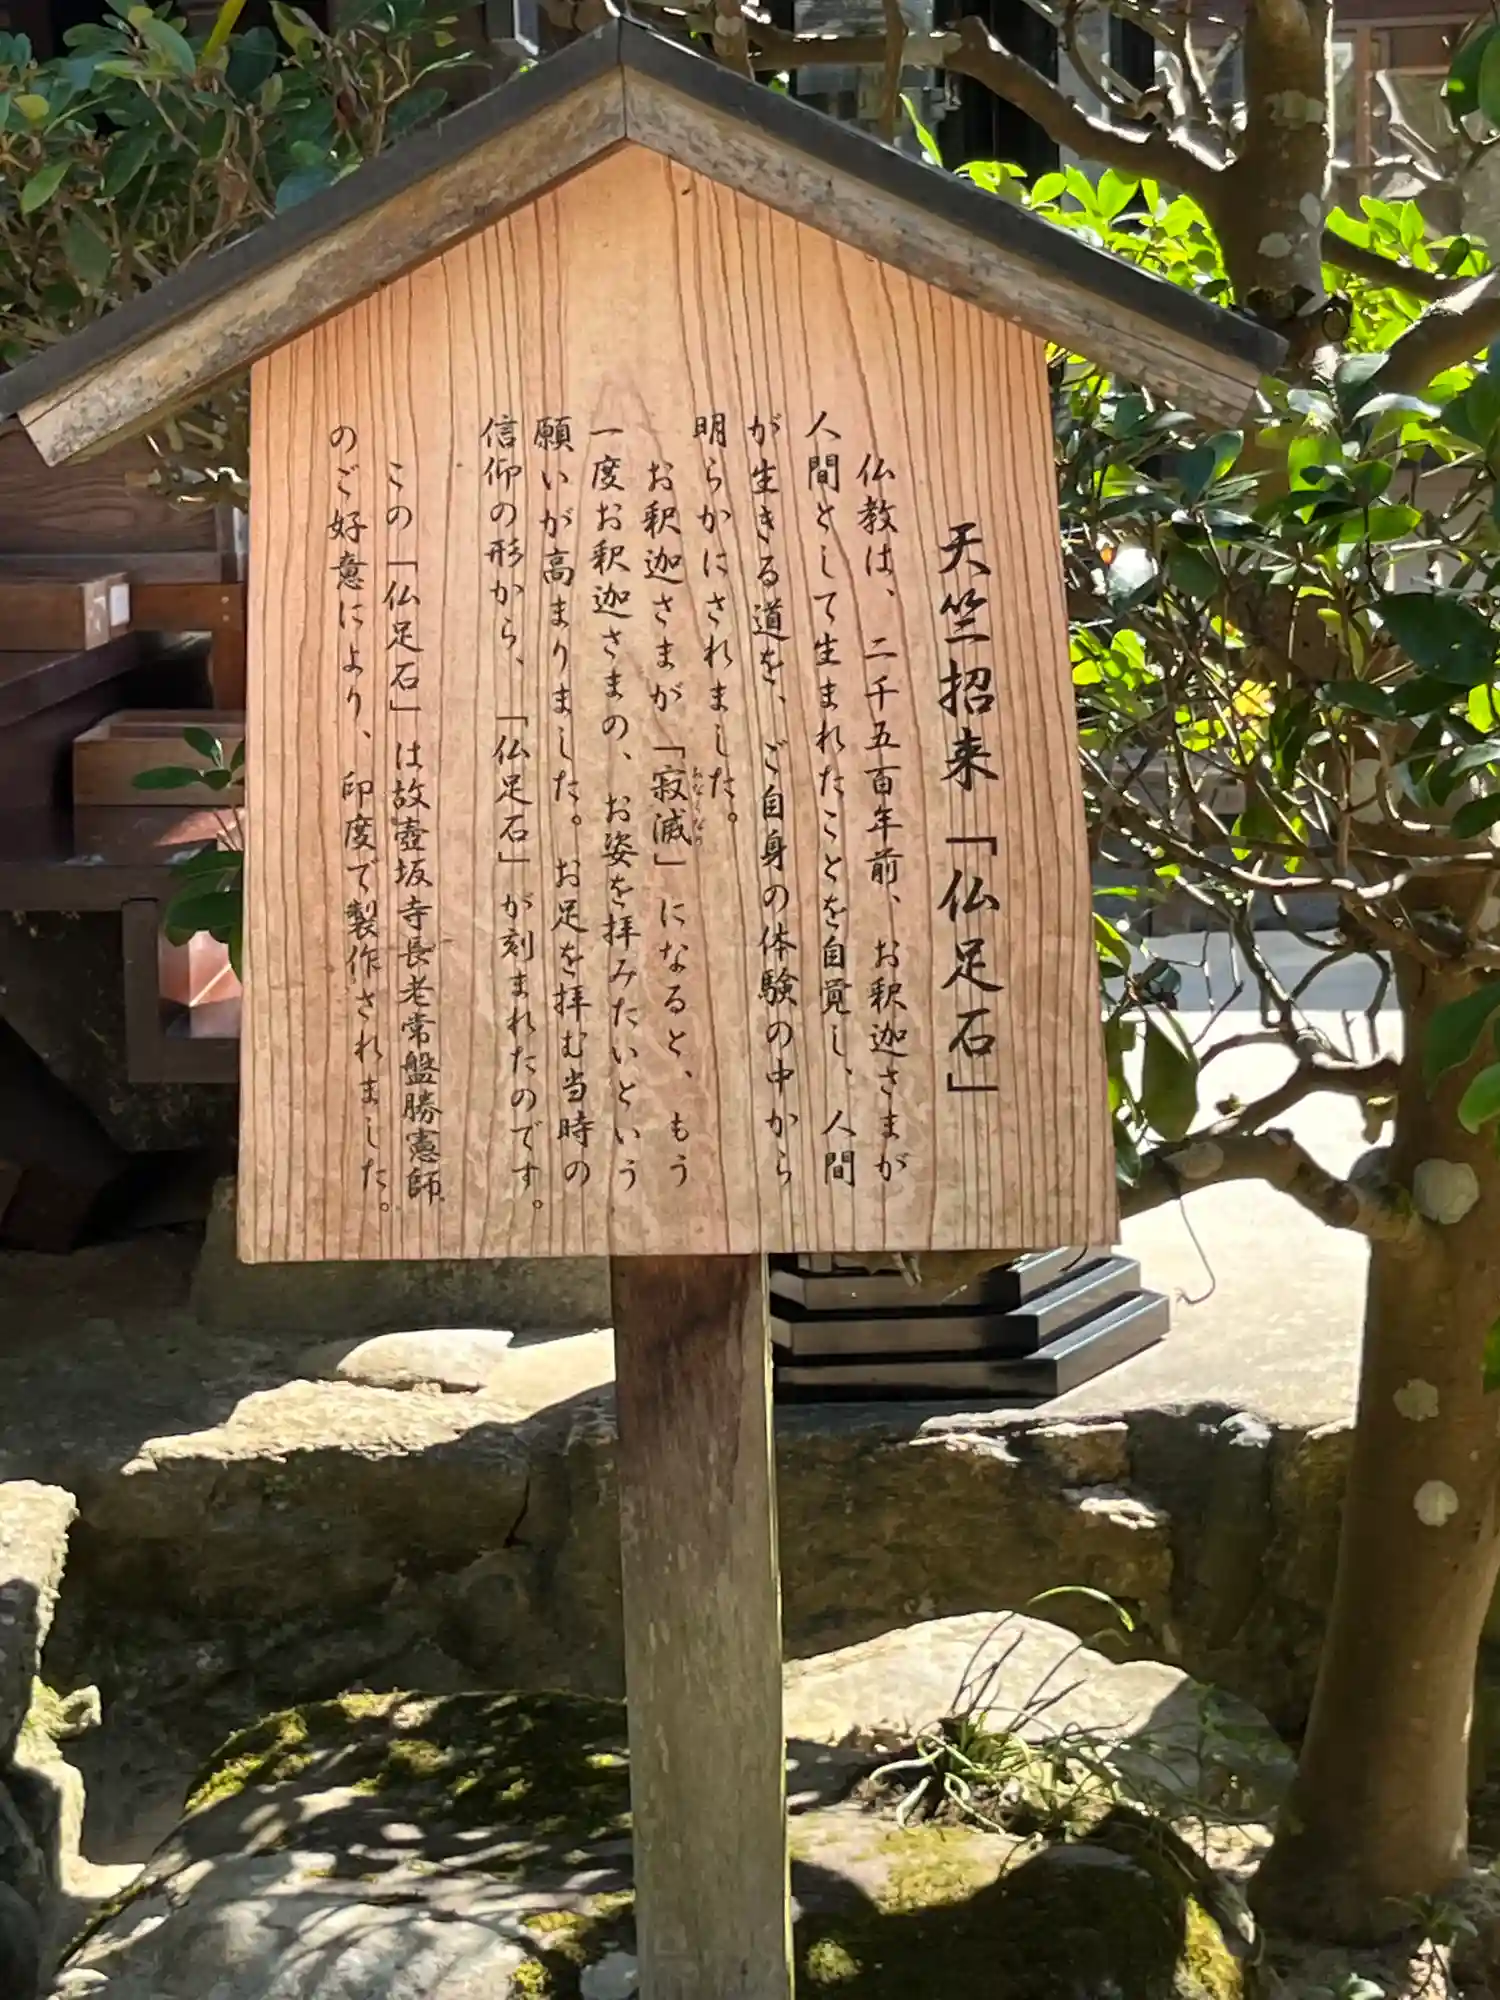 天竺招来「仏足石」
仏教は、二千五百年前、お釈迦さまが
人間として生まれたことを自覚し、人間
が生きる道を、ご自身の体験の中から
明らかにされました。
お釈迦さまが「寂滅」になると、もう
一度お釈迦さまの、お姿を拝みたいという
願いが高まりました。お足を拝む当時の
信仰の形から、「仏足石」が刻まれたのです。
この「仏足石」は故壺坂寺長老常盤勝憲師
のご好意により、印度で製作されました。